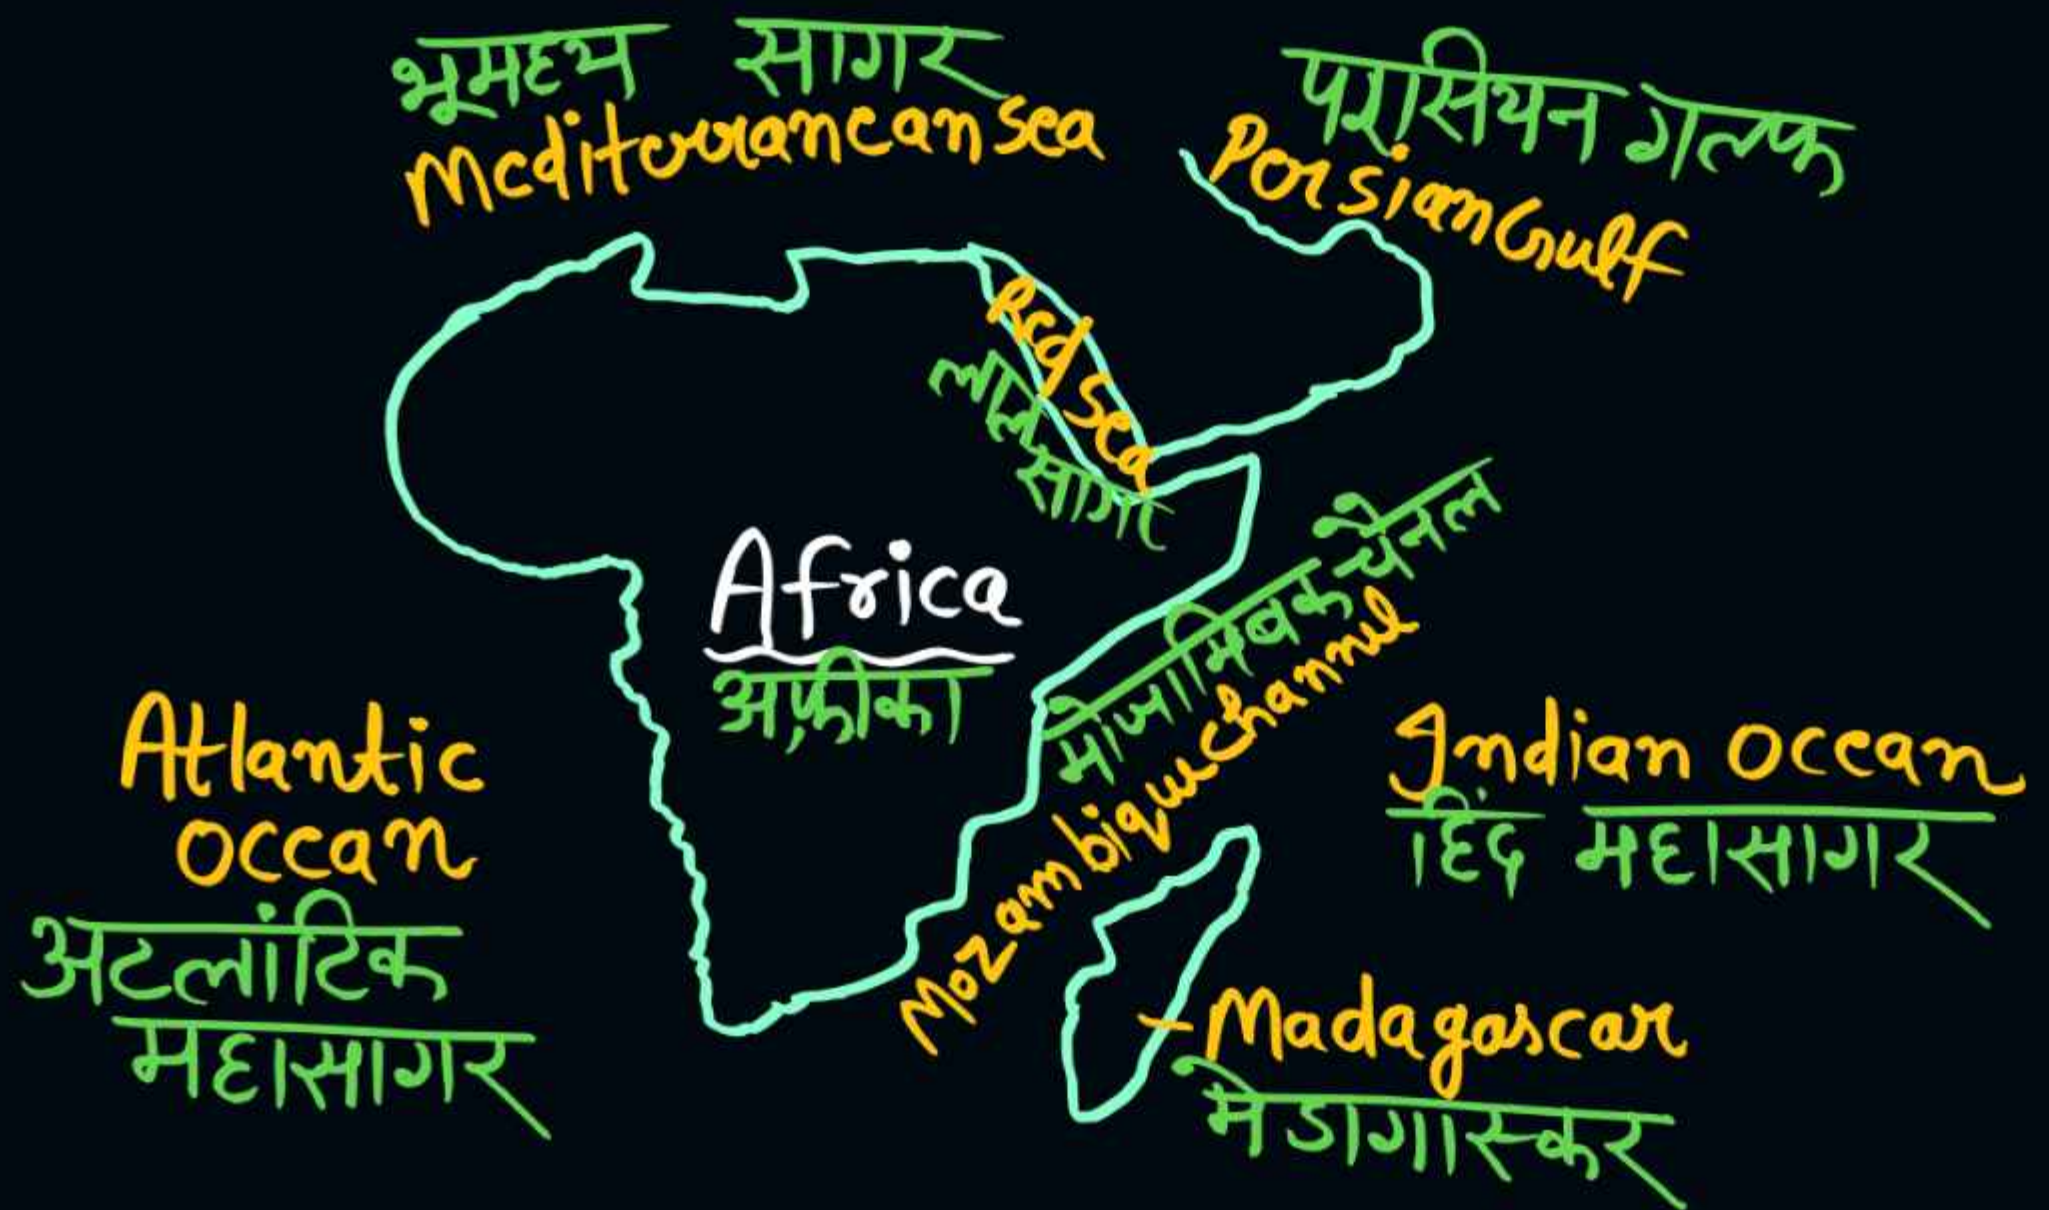 भूमध्य सागर
Mediterranean sea
परसियन गल्फ
Persian Gulf
Red Sea
लाल
सागर
Africa
अफ्रीका
मोजाम्बिक चैनल
Mozambique channel
Atlantic
ocean
अटलांटिक
महासागर
Indian ocean
हिंद महासागर
Madagascar
मेडागास्कर